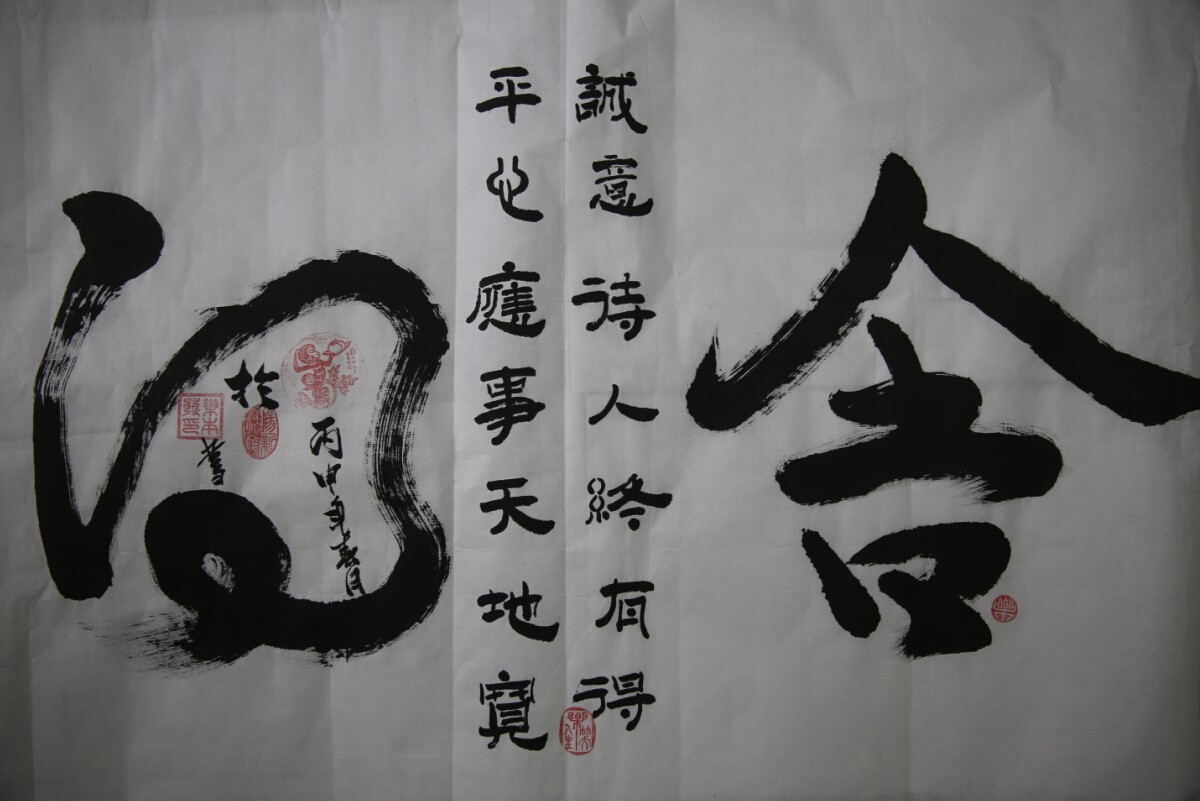 舍
誠意待人終有得
平心應事天地寬
得
丙申年春月
於